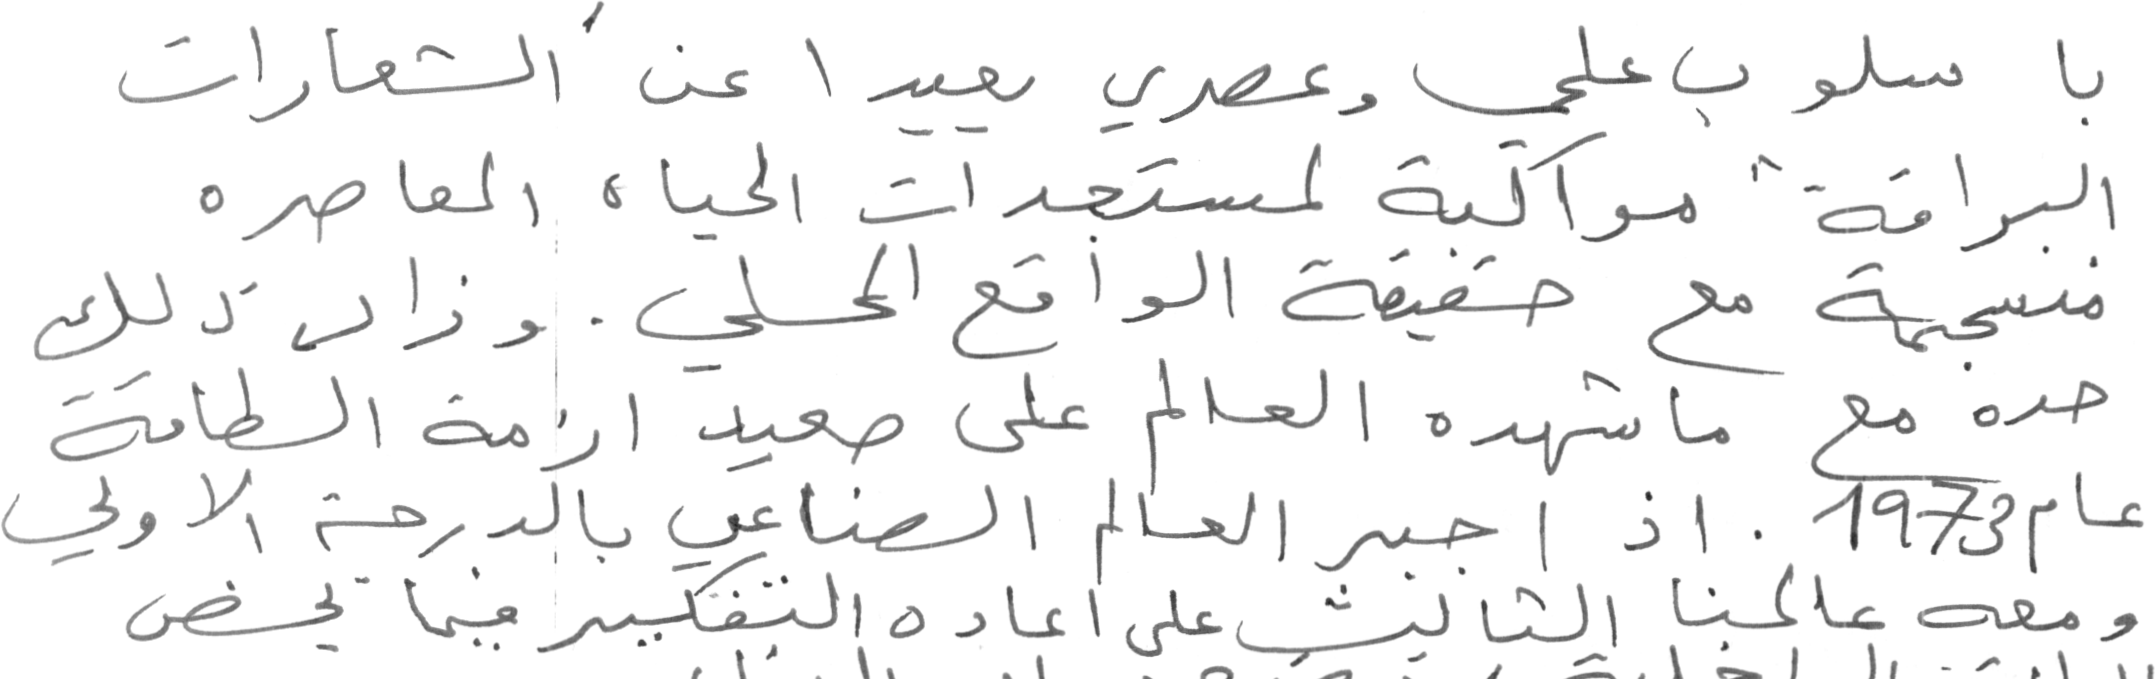 باسلوب علمي وعصري بعيدا عن "الشعارات
البراقة" مواكبة لمستجدات الحياه المعاصره
منسجمة مع حقيقة الواقع المحلي . وزاد ذلك
حده مع ما شهده العالم على صعيد ازمة الطاقة
عام 1973 . اذ اجبر العالم الصناعي بالدرجة الاولي
ومعه عالمنا الثالث على اعاده التفكير فيما يخص